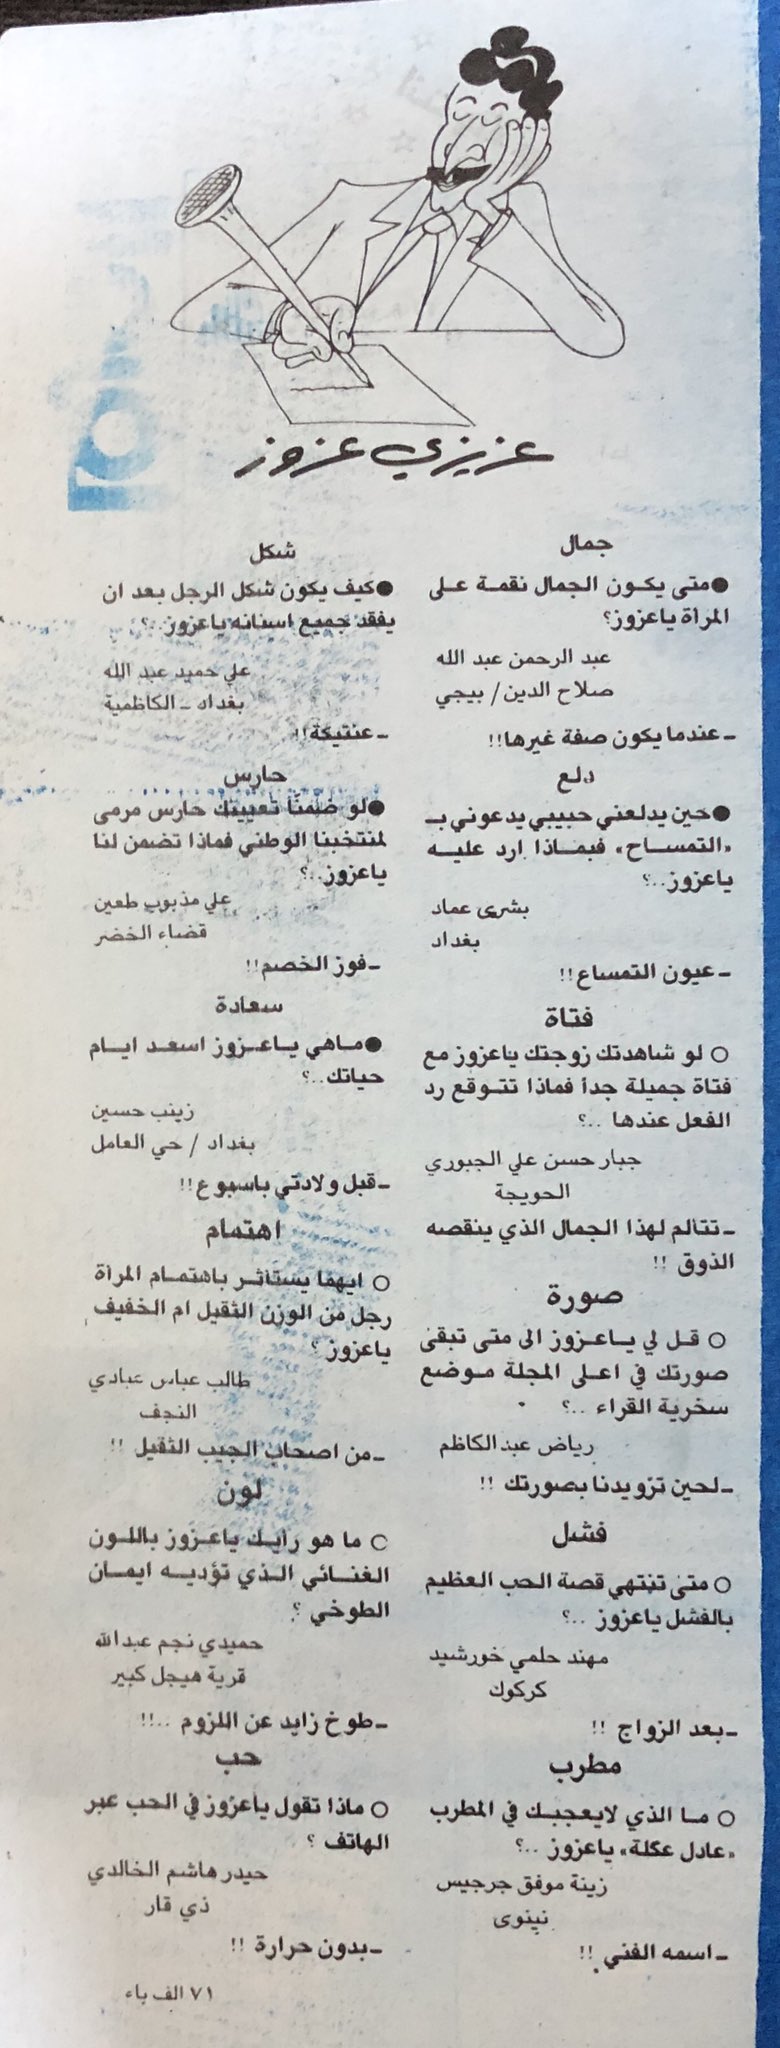 عزيزي عزوز
جمال
●متى يكون الجمال نقمة على
المرأة ياعزوز؟
عبد الرحمن عبد الله
صلاح الدين/ بيجي
ـ عندما يكون صفة غيرها!!
دلع
●حين يدلعني حبيبي يدعوني بـ
«التمساح» فبماذا ارد عليه
ياعزوز..؟
بشرى عماد
بغداد
ـ عيون التمساع!!
فتاة
○ لو شاهدتك زوجتك ياعزوز مع
فتاة جميلة جداً فماذا تتوقع رد
الفعل عندها ..؟
جبار حسن علي الجبوري
الحويجة
ـ تتألم لهذا الجمال الذي ينقصه
الذوق !!
صورة
○ قل لي ياعزوز الى متى تبقى
صورتك في اعلى المجلة موضع
سخرية القراء ..؟
رياض عبد الكاظم
ـ لحين تزويدنا بصورتك !!
فشل
○ متى تنتهي قصة الحب العظيم
بالفشل ياعزوز ..؟
مهند حلمي خورشيد
كركوك
ـ بعد الزواج !!
مطرب
○ ما الذي لايعجبك في المطرب
«عادل عگلة» ياعزوز ..؟
زينة موفق جرجيس
نينوى
ـ اسمه الفني !!
شكل
●كيف يكون شكل الرجل بعد ان
يفقد جميع اسنانه ياعزوز..؟
علي حميد عبد الله
بغداد ـ الكاظمية
ـ عنتيكة!!
حارس
●لو ضمنّا تعيينك حارس مرمى
لمنتخبنا الوطني فماذا تضمن لنا
ياعزوز..؟
علي مذبوب طعين
قضاء الخضر
ـ فوز الخصم!!
سعادة
●ماهي ياعزوز اسعد ايام
حياتك..؟
زينب حسين
بغداد / حي العامل
ـ قبل ولادتي باسبوع!!
اهتمام
○ ايهما يستأثر باهتمام المرأة
رجل من الوزن الثقيل ام الخفيف
ياعزوز ؟
طالب عباس عبادي
النجف
ـ من اصحاب الجيب الثقيل !!
لون
○ ما هو رأيك ياعزوز باللون
الغنائي الذي تؤديه ايمان
الطوخي ؟
حميدي نجم عبدالله
قرية هيجل كبير
ـ طوخ زايد عن اللزوم ..!!
حب
○ ماذا تقول ياعزوز في الحب عبر
الهاتف ؟
حيدر هاشم الخالدي
ذي قار
ـ بدون حرارة !!
٧١ الف باء